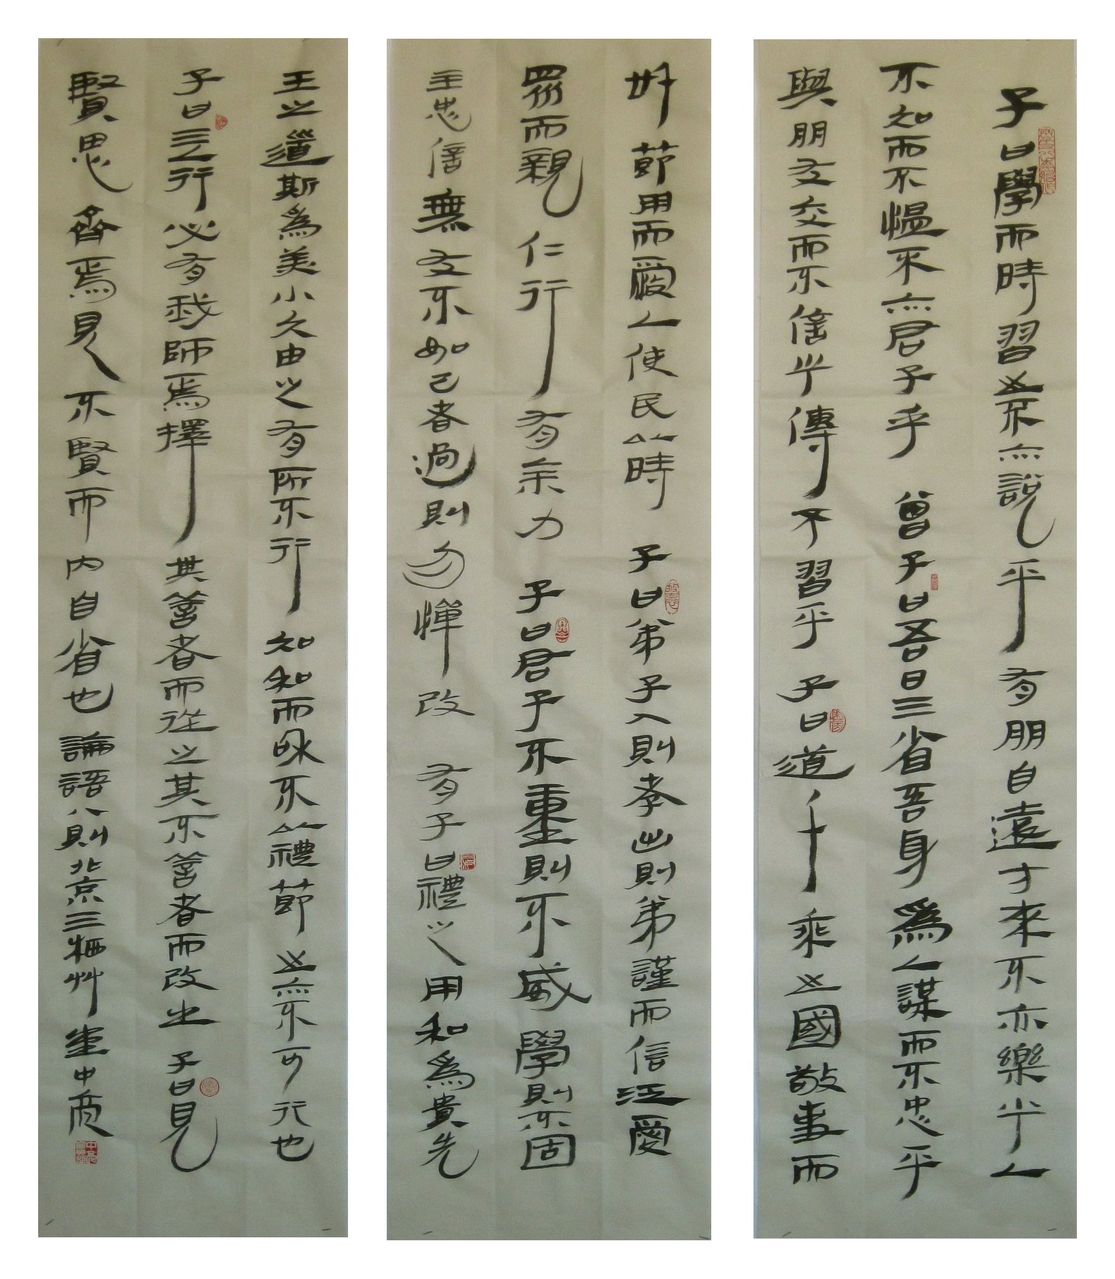 子曰學而時習之不亦說乎有朋自遠方來不亦樂乎人
不知而不慍不亦君子乎 曾子曰吾日三省吾身為人謀而不忠乎
與朋友交而不信乎傳不習乎 子曰道千乘之國敬事而
節用而愛人使民以時 子曰弟子入則孝出則弟謹而信汎愛
眾而親仁行有余力 子曰君子不重則不威學則不固
主忠信無友不如己者過則勿憚改 有子曰禮之用和為貴先
王之道斯為美小大由之有所不行知和而和不以禮節之亦不可行也
子曰三人行必有我師焉擇其善者而從之其不善者而改之 子曰見
賢思齊焉見不賢而內自省也 論語八則北京三栖艸堂中